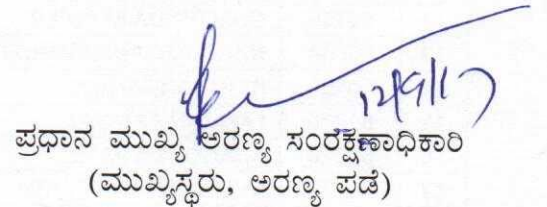 12/9/17
ಪ್ರಧಾನ ಮುಖ್ಯ ಅರಣ್ಯ ಸಂರಕ್ಷಣಾಧಿಕಾರಿ
(ಮುಖ್ಯಸ್ಥರು, ಅರಣ್ಯ ಪಡೆ)